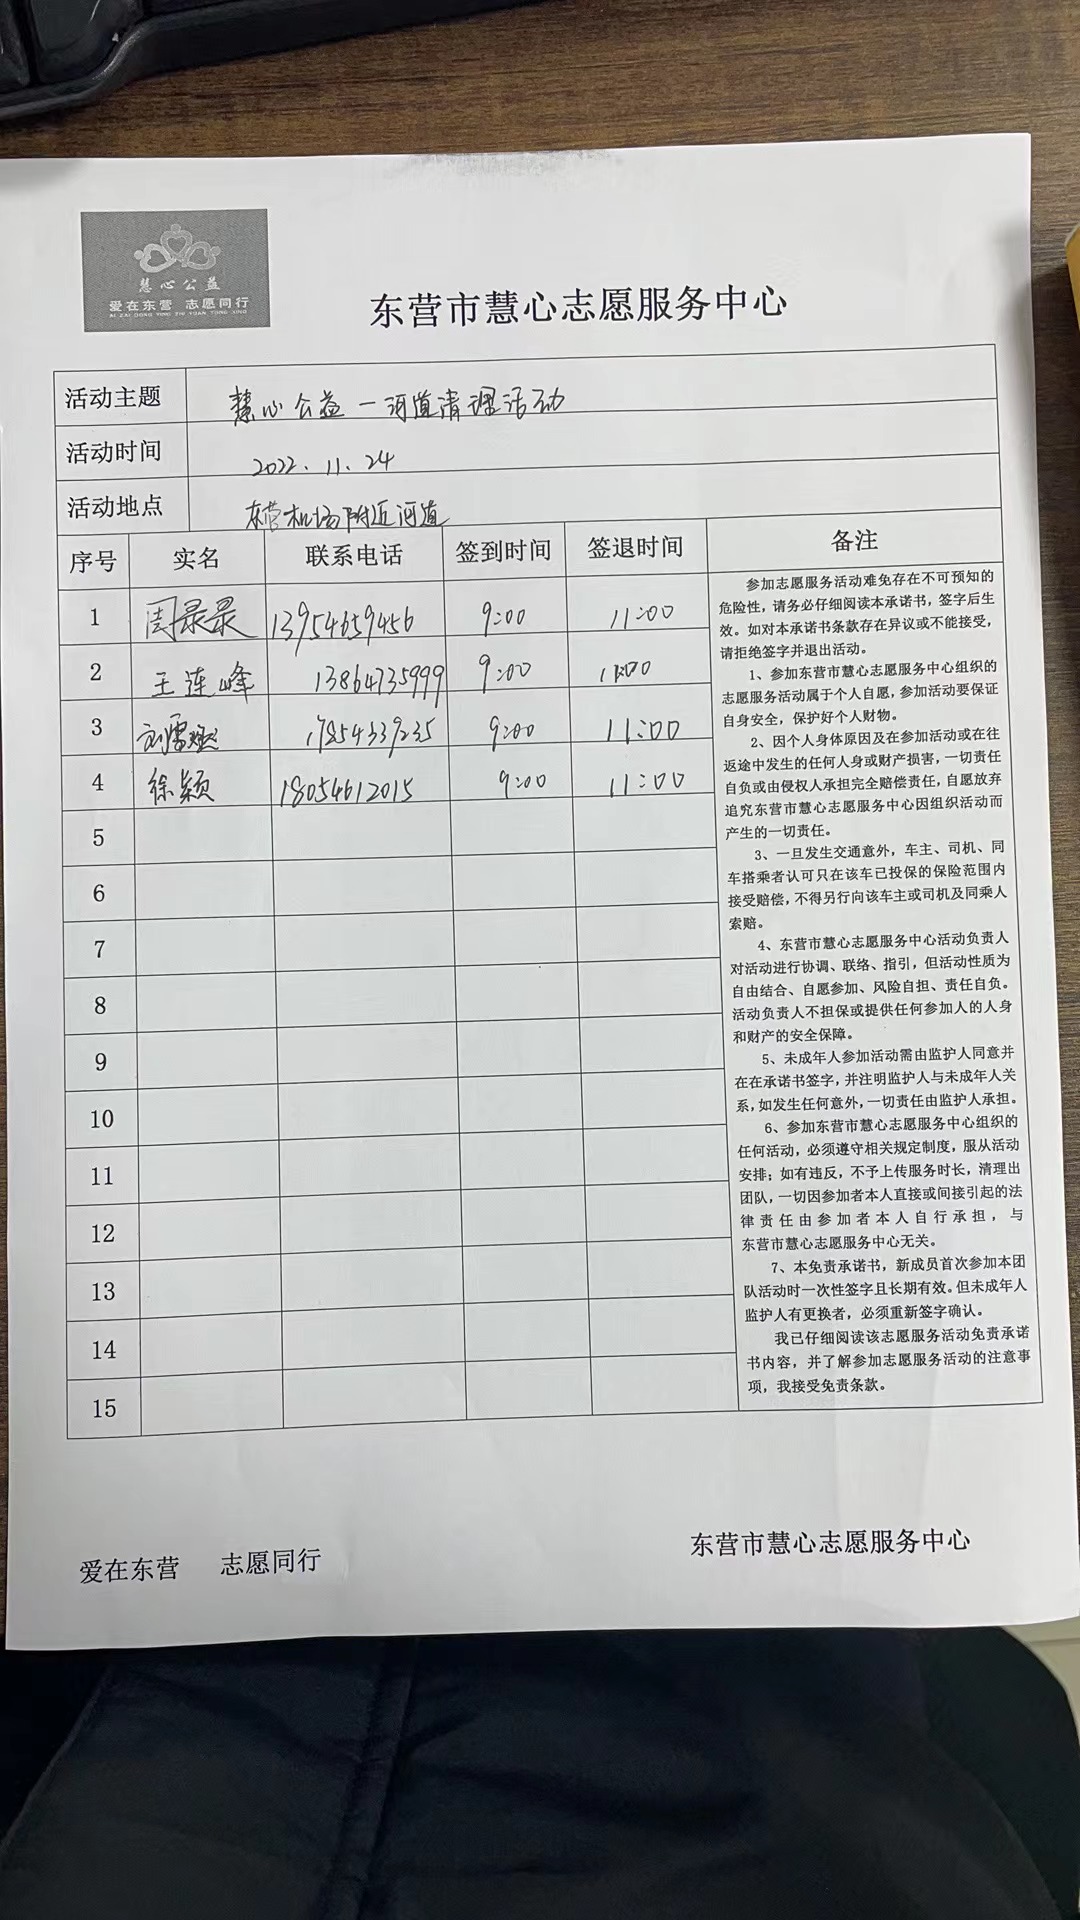 慧心公益
爱在东营 志愿同行
AI ZAI DONG YING ZHI YUAN TONG XING
东营市慧心志愿服务中心
活动主题 慧心公益一河道清理活动
活动时间 2022.11.24
活动地点 东营机场附近河道
序号 实名 联系电话 签到时间 签退时间 备注
1 周景景 13954659456 9:00 11:00
2 王连峰 13864735999 9:00 11:00
3 刘雪 9:00 11:00
4 徐颖 18054612015 9:00 11:00
5
6
7
8
9
10
11
12
13
14
15
参加志愿服务活动难免存在不可预知的
危险性，请务必仔细阅读本承诺书，签字后生
效。如对本承诺书条款存在异议或不能接受，
请拒绝签字并退出活动。
1、参加东营市慧心志愿服务中心组织的
志愿服务活动属于个人自愿，参加活动要保证
自身安全，保护好个人财物。
2、因个人身体原因及在参加活动或在往
返途中发生的任何人身或财产损害，一切责任
自负或由侵权人承担完全赔偿责任，自愿放弃
追究东营市慧心志愿服务中心因组织活动而
产生的一切责任。
3、一旦发生交通意外，车主、司机、同
车搭乘者认可只在该车已投保的保险范围内
接受赔偿，不得另行向该车主或司机及同乘人
索赔。
4、东营市慧心志愿服务中心活动负责人
对活动进行协调、联络、指引，但活动性质为
自由结合、自愿参加、风险自担、责任自负。
活动负责人不担保或提供任何参加人的人身
和财产的安全保障。
5、未成年人参加活动需由监护人同意并
在在承诺书签字，并注明监护人与未成年人关
系，如发生任何意外，一切责任由监护人承担。
6、参加东营市慧心志愿服务中心组织的
任何活动，必须遵守相关规定制度，服从活动
安排；如有违反，不予上传服务时长，清理出
团队，一切因参加者本人直接或间接引起的法
律责任由参加者本人自行承担，与
东营市慧心志愿服务中心无关。
7、本免责承诺书，新成员首次参加本团
队活动时一次性签字且长期有效。但未成年人
监护人有更换者，必须重新签字确认。
我已仔细阅读该志愿服务活动免责承诺
书内容，并了解参加志愿服务活动的注意事
项，我接受免责条款。
爱在东营 志愿同行
东营市慧心志愿服务中心